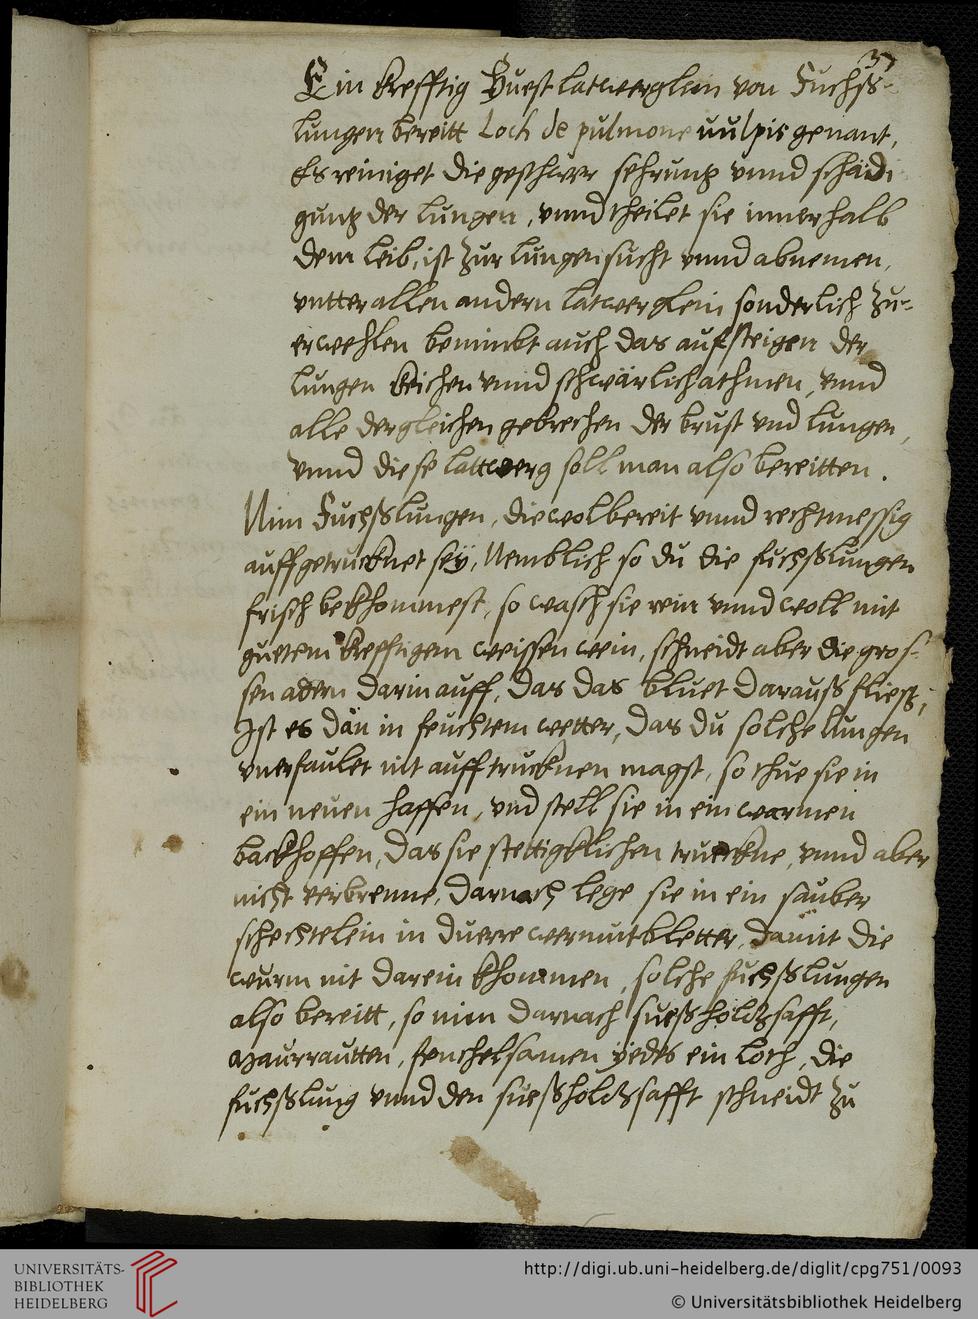 37
Ein krefftig Buest latwerglein von Fuchß-
lungen bereitt Loch de pulmone uulpis genant,
Es reiniget die geschwer sehrung vnnd schädi
gung der lungen, vnnd theilet sie innerhalb
dem leib, ist zur lungensucht vnnd abnemen,
vntter allen andern latwerglein sonderlich zu-
erwehlen benimbt auch das aufsteigen der
lungen keichen vnnd schwärlich athmen, vnnd
alle dergleichen gebrechen der brust vnd lungen,
vnnd diese lattwerg soll man also bereitten.
Nim Fuchßlungen, die wolbereit vnnd rechtmessig
auffgetrucknet seÿ, Nemblich so du die fuchßlungen
frisch bekhommest, so wasch sie rein vnnd woll mit
guetem krefftigem weissen wein, schneidt aber die gros-
sen adern darin auff, das das bluet darauss fliess,
Ist es dan in feuchtem wetter, das du solche lungen
vnerfaulet nit aufftrucknen magst, so thue sie in
ein neuen haffen, vnd stell sie in ein warmen
backhoffen, das sie stettigklichen truckne, vnnd aber
nicht verbrenne, darnach lege sie in ein sauber
schechtelein in duerre wermutbletter, damit die
wurm nit darein khommen, solche fuchßlungen
also bereitt, so nim darnach suessholtzsafft,
Maurrautten, fenchelsamen yedes ein loth, die
fuchßlung vnnd den suessholtzsafft schneidt zu
UNIVERSITÄTS-
BIBLIOTHEK
HEIDELBERG
http://digi.ub.uni-heidelberg.de/diglit/cpg751/0093
© Universitätsbibliothek Heidelberg